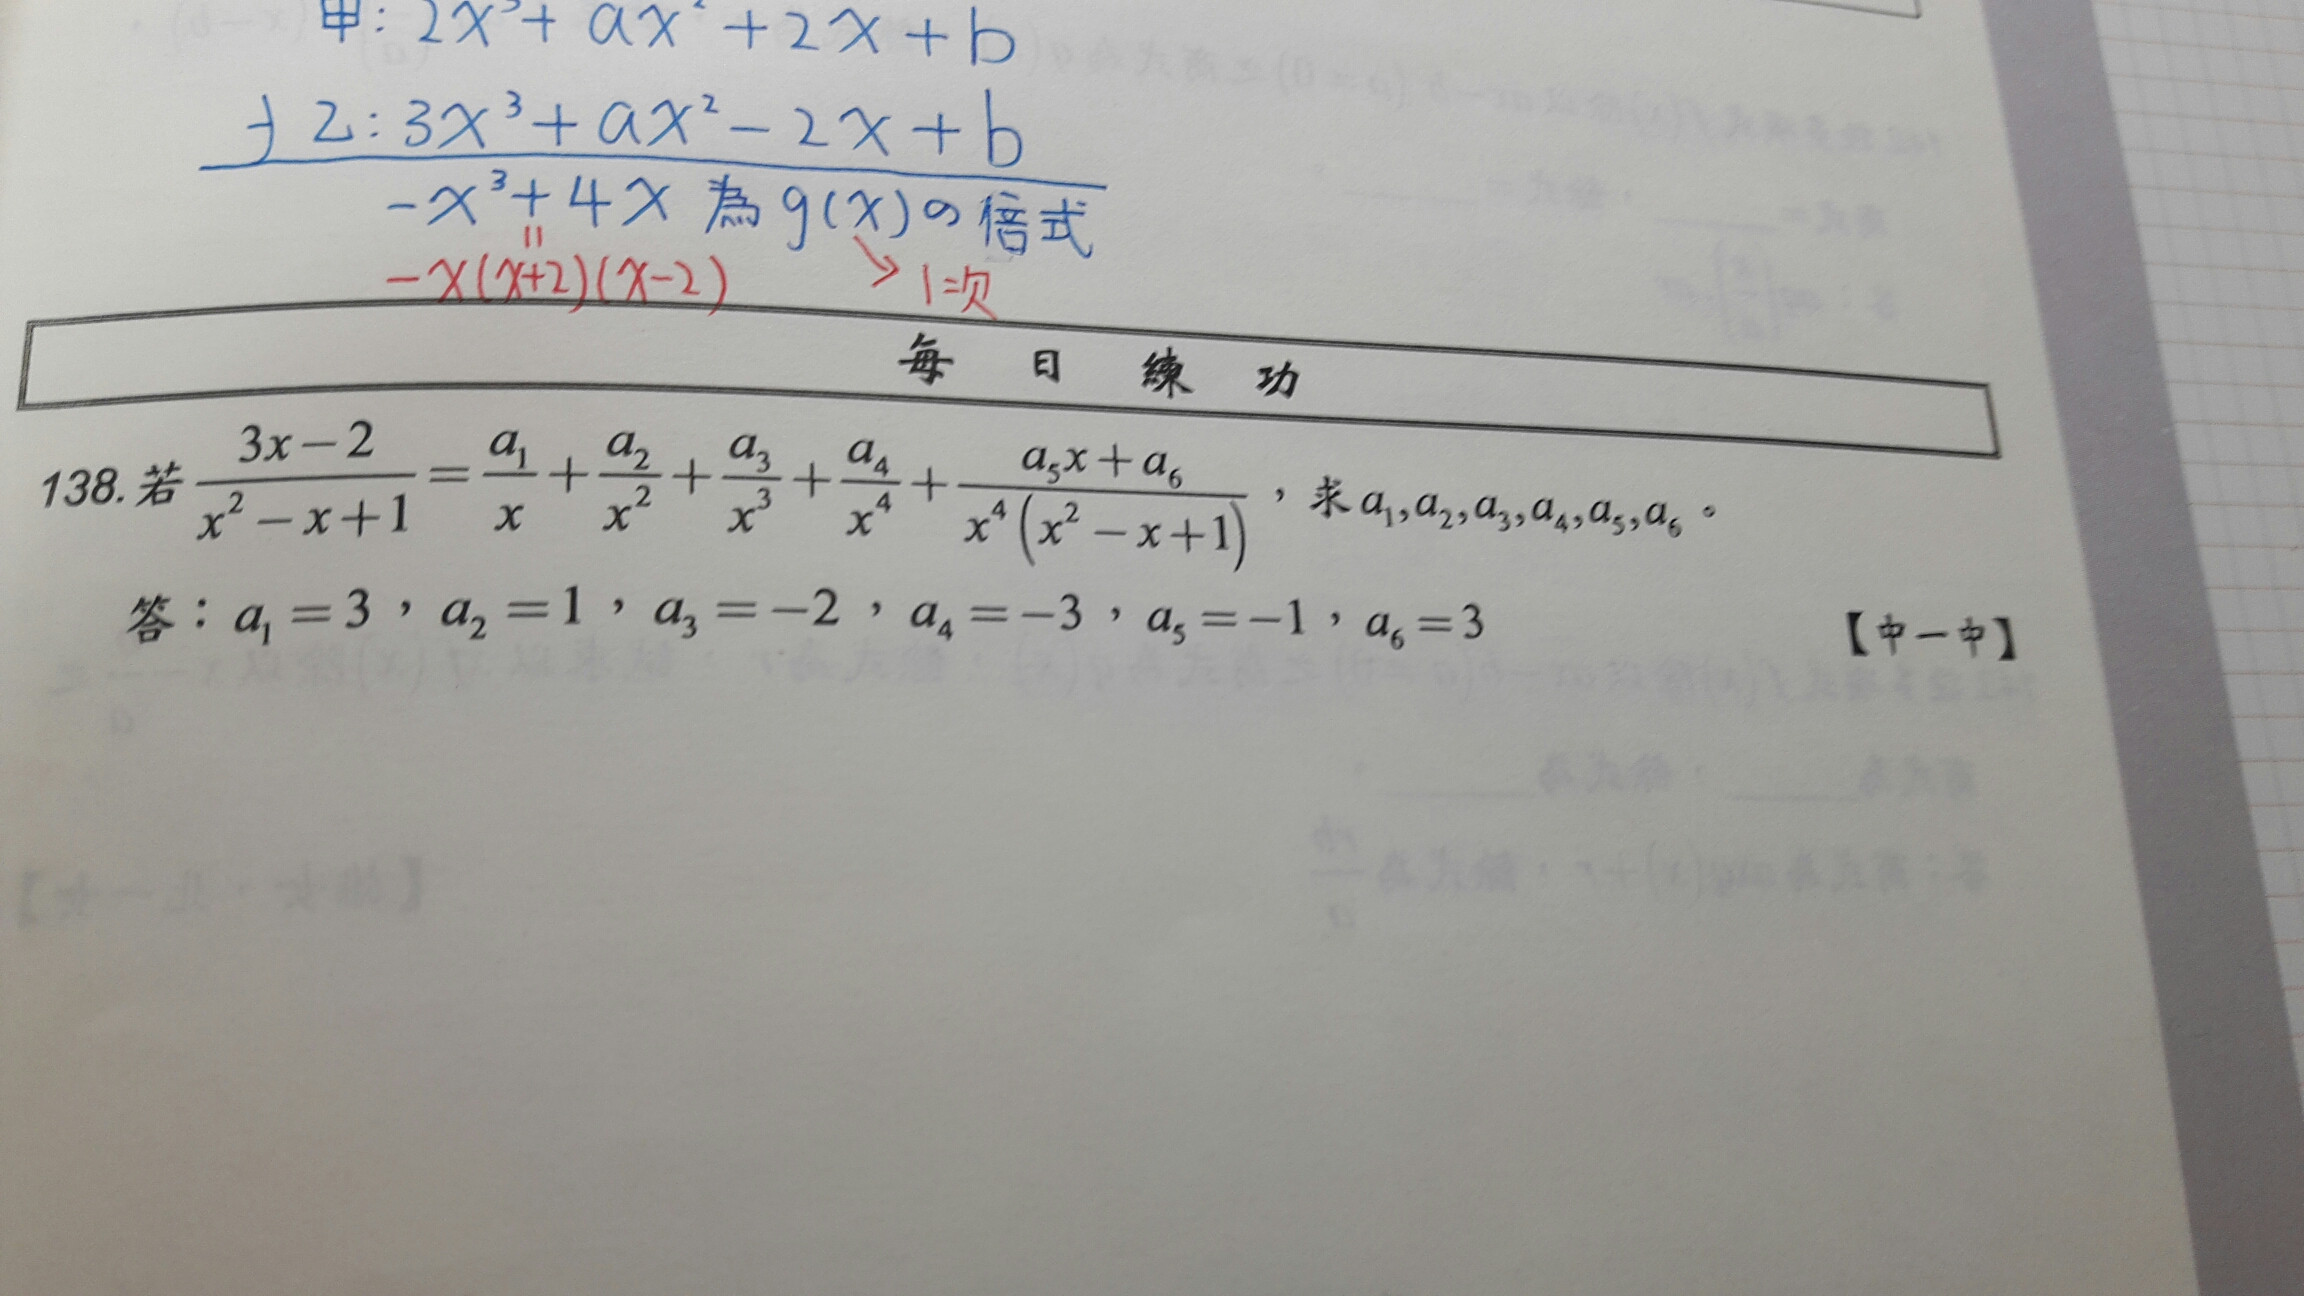 甲: 2x³+ax²+2x+b
-) 乙: 3x³+ax²-2x+b
-x³+4x 為 g(x)の倍式
=
-x(x+2)(x-2) ↘ 1=次
每日練功
138. 若 \frac{3x-2}{x²-x+1} = \frac{a₁}{x} + \frac{a₂}{x²} + \frac{a₃}{x³} + \frac{a₄}{x⁴} + \frac{a₅x+a₆}{x⁴(x²-x+1)},求a₁,a₂,a₃,a₄,a₅,a₆。
答:a₁=3,a₂=1,a₃=-2,a₄=-3,a₅=-1,a₆=3 【中一中】